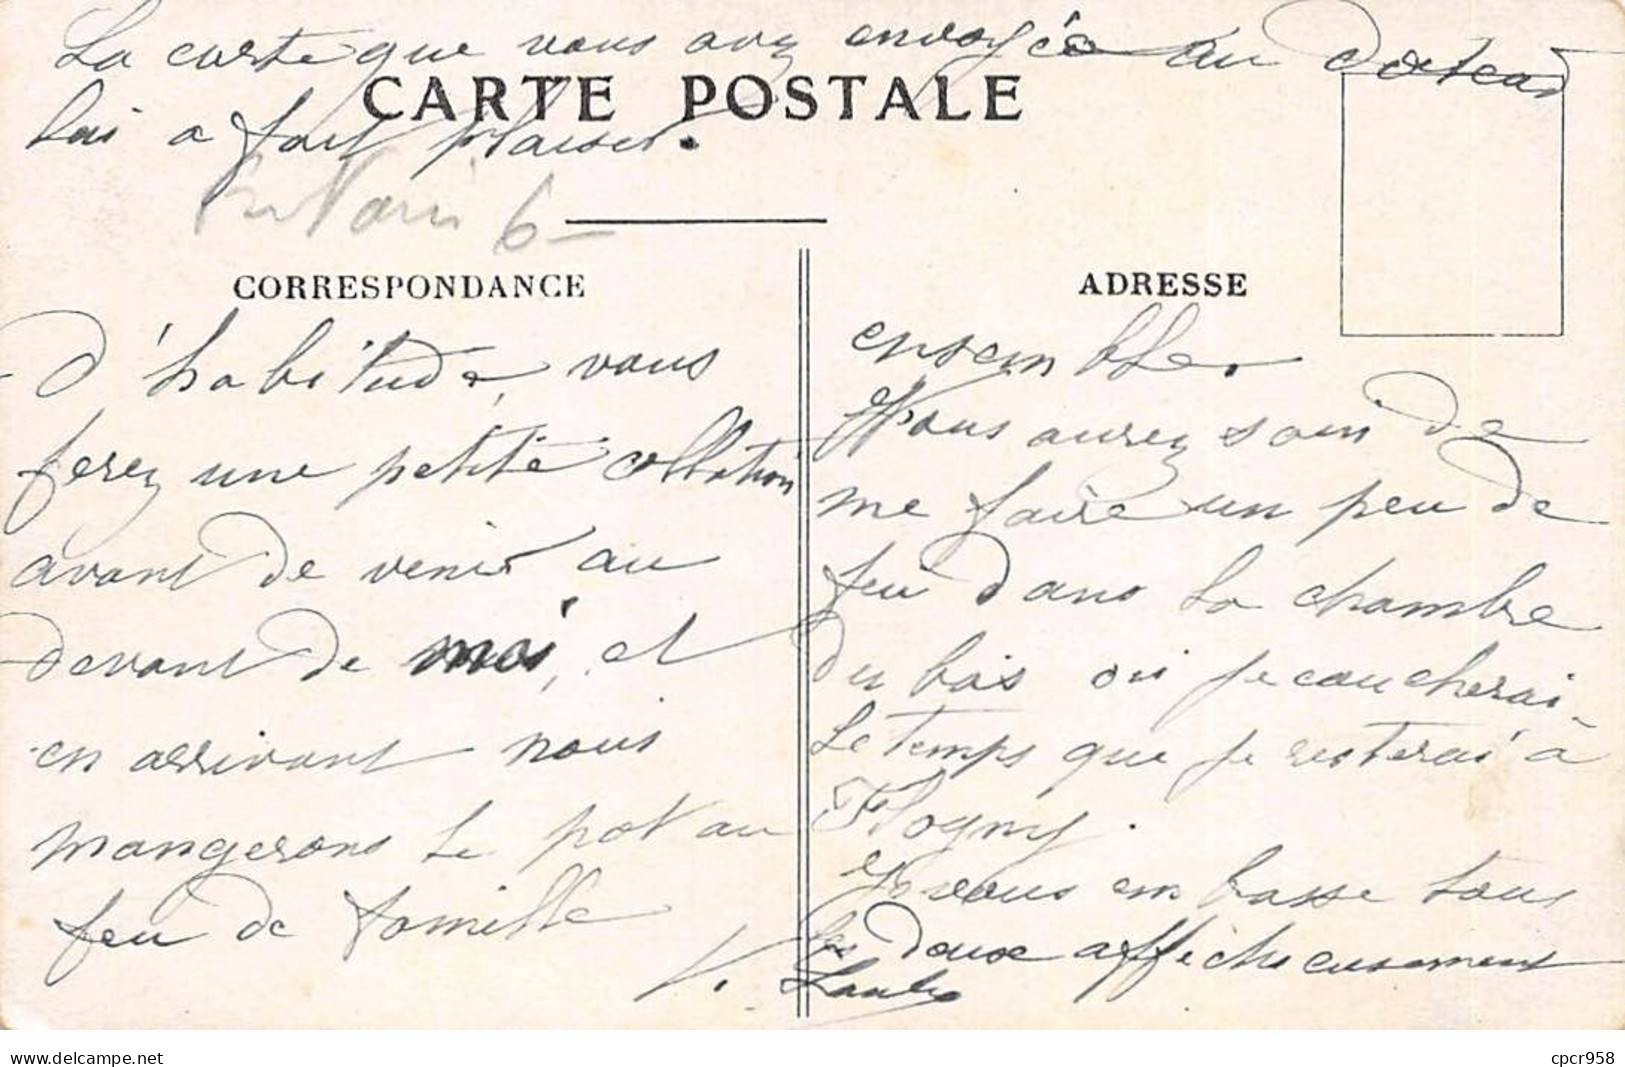 La carte que vous avez envoyée au docteur
lui a fait plaisir.
CARTE POSTALE
6-
CORRESPONDANCE
d'habitude, vous
ferez une petite collation
avant de venir au
devant de moi, et
en arrivant nous
mangerons le pot au
feu de famille
ADRESSE
ensemble.
Vous aurez soin de
me faire un peu de
feu dans la chambre
du bas où je coucherai
le temps que je resterai à
Flogny.
Je vous embrasse tous
les deux affectueusement
V.
www.delcampe.net
cpcr958